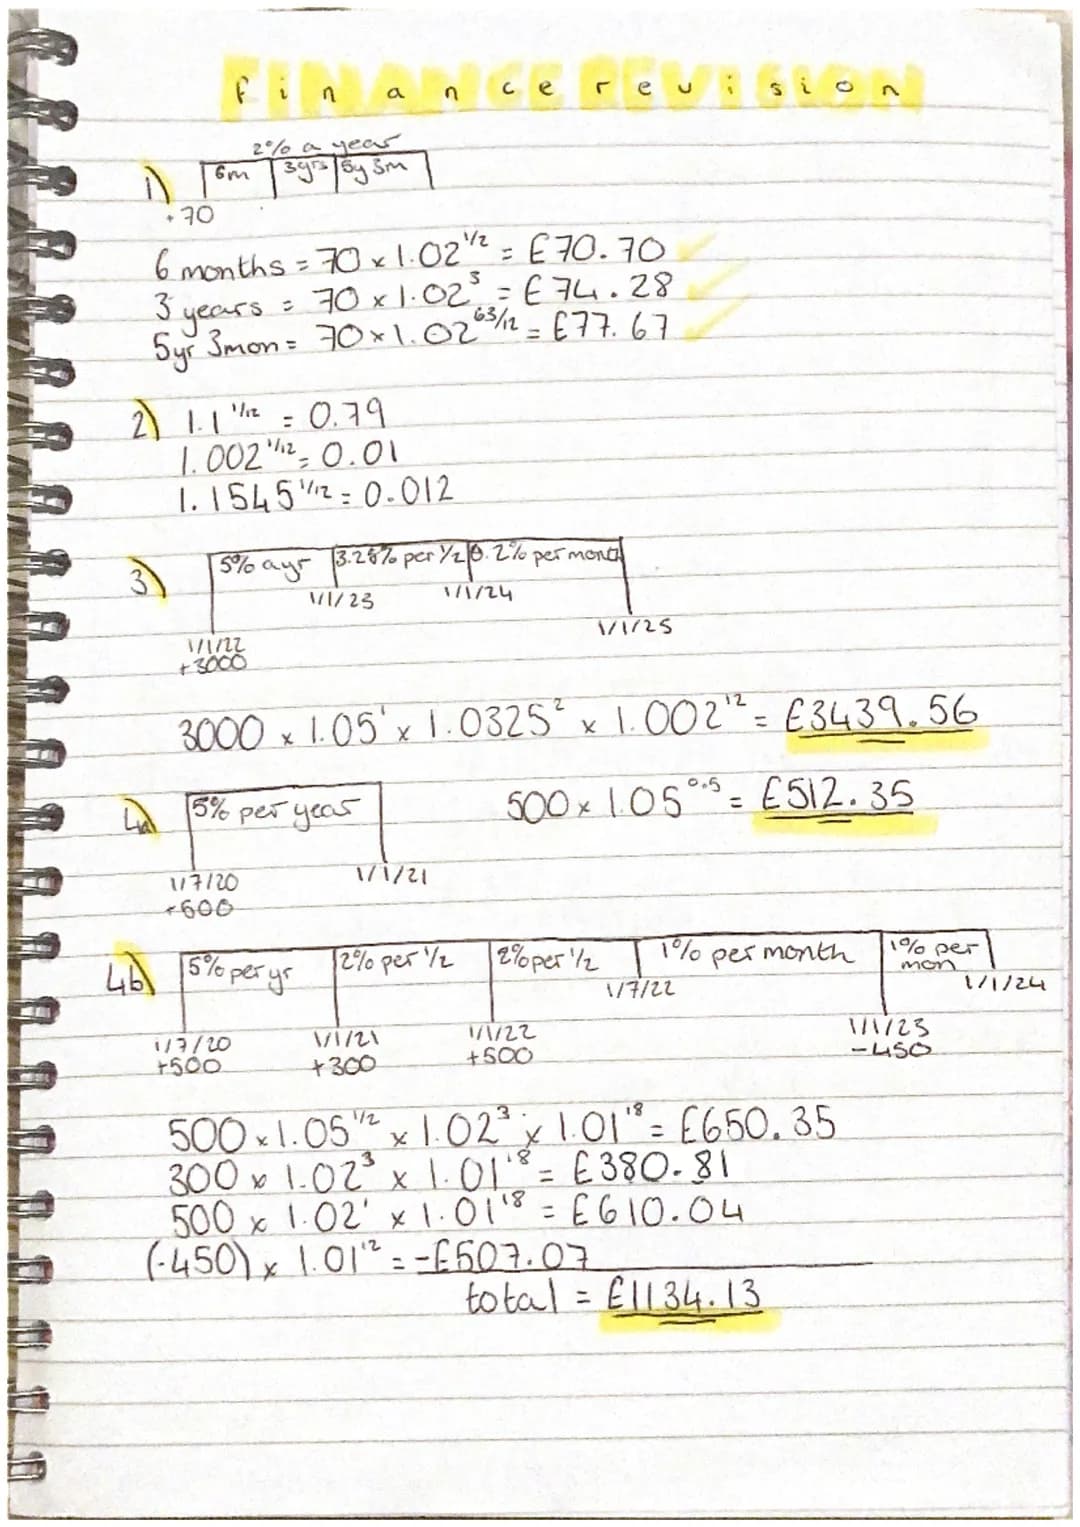 finance revision
2% a year
1) 6m 3yrs 5y 3m
+70
6 months = 70 x 1.02^1/2 = £70.70
3 years = 70 x 1.02^3 = £74.28
5yr 3mon = 70 x 1.02^63/12 = £77.67
2) 1.1^1/12 = 0.79
1.002^1/12 = 0.01
1.1545^1/12 = 0.012
3) 5% a yr 3.25% per 1/2 0.2% per month
1/1/23 1/1/24
1/1/22 1/1/25
+3000
3000 x 1.05^1 x 1.0325^2 x 1.002^12 = £3439.56
4a) 5% per year 500 x 1.05^0.5 = £512.35
1/7/20 1/1/21
+500
4b) 5% per yr 2% per 1/2 2% per 1/2 1% per month 1% per mon
1/7/22 1/1/24
1/7/20 1/1/21 1/1/22 1/1/23
+500 +300 +500 -450
500 x 1.05^1/2 x 1.02^3 x 1.01^18 = £650.35
300 x 1.02^3 x 1.01^18 = £380.81
500 x 1.02^1 x 1.01^18 = £610.04
(-450) x 1.01^12 = -£507.07
total = £1134.13